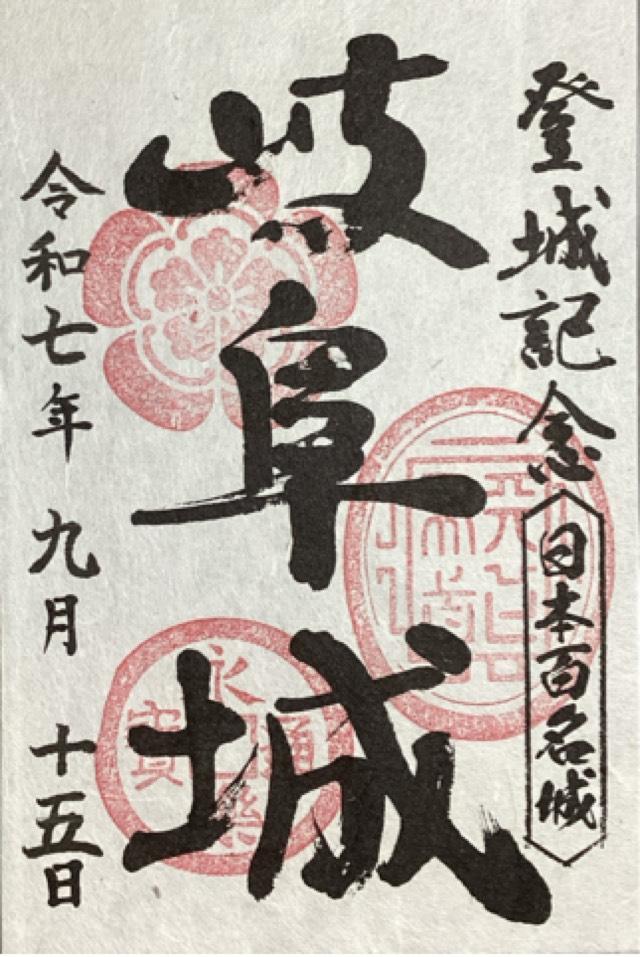 登城記念
日本百名城
岐阜城
令和七年 九月 十五日
天下布武
永樂通寳